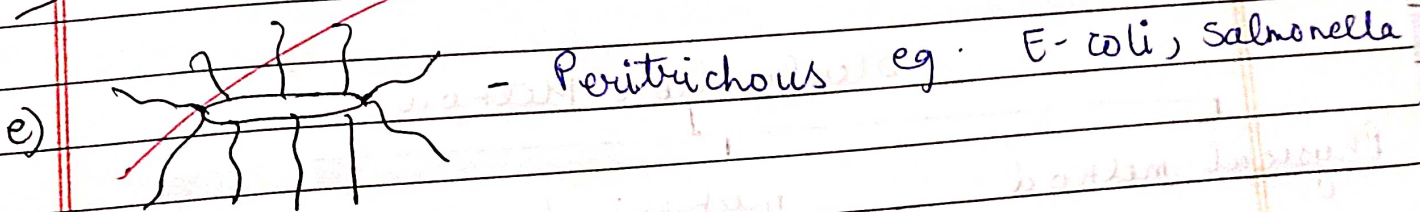 e) - Peritrichous eg. E-coli, Salmonella